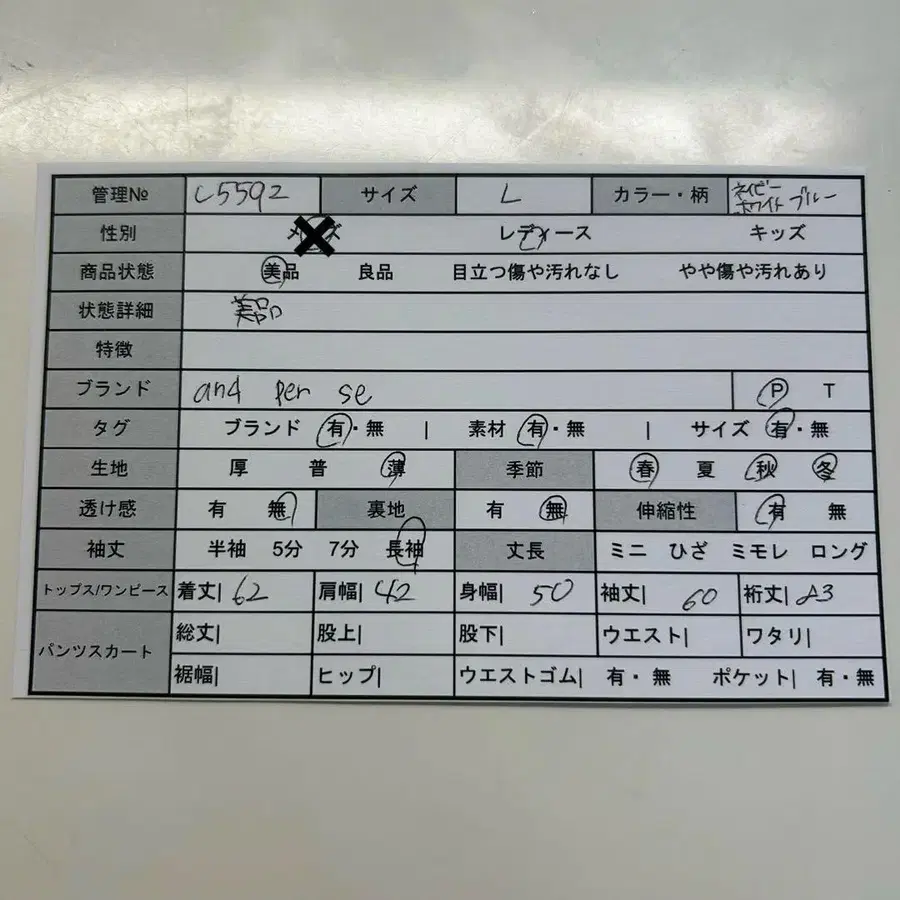 管理№ C5592 サイズ L カラー・柄 ネイビー ホワイト ブルー
性別 レディース キッズ
商品状態 美品 良品 目立つ傷や汚れなし やや傷や汚れあり
状態詳細 美品
特徴
ブランド and per se P T
タグ ブランド 有・無 | 素材 有・無 | サイズ 有・無
生地 厚 普 薄 季節 春 夏 秋 冬
透け感 有 無 裏地 有 無 伸縮性 有 無
袖丈 半袖 5分 7分 長袖 丈長 ミニ ひざ ミモレ ロング
トップス/ワンピース 着丈| 62 肩幅| 42 身幅| 50 袖丈| 60 裄丈| 83
パンツスカート 総丈| 股上| 股下| ウエスト| ワタリ|
裾幅| ヒップ| ウエストゴム| 有・無 ポケット| 有・無